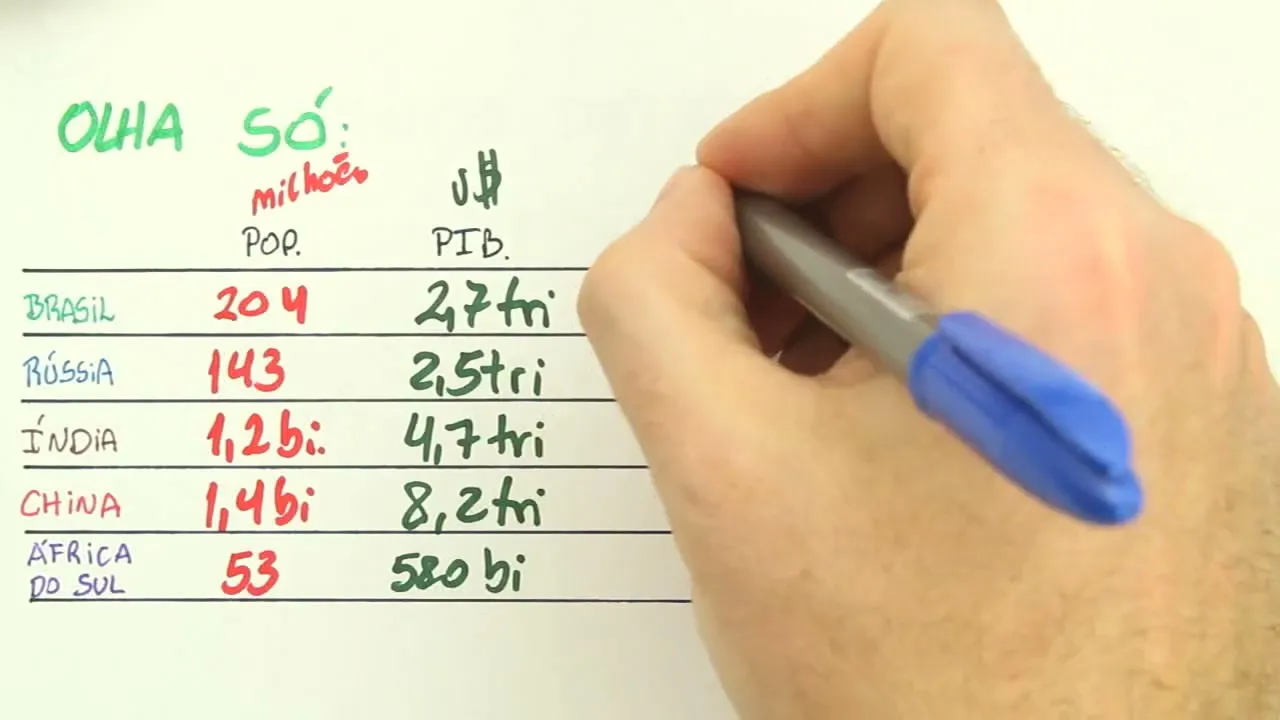 OLHA SÓ:
milhões U$
POP. PIB.
BRASIL 204 2,7 tri
RÚSSIA 143 2,5 tri
ÍNDIA 1,2 bi. 4,7 tri
CHINA 1,4 bi 8,2 tri
ÁFRICA
DO SUL 53 580 bi